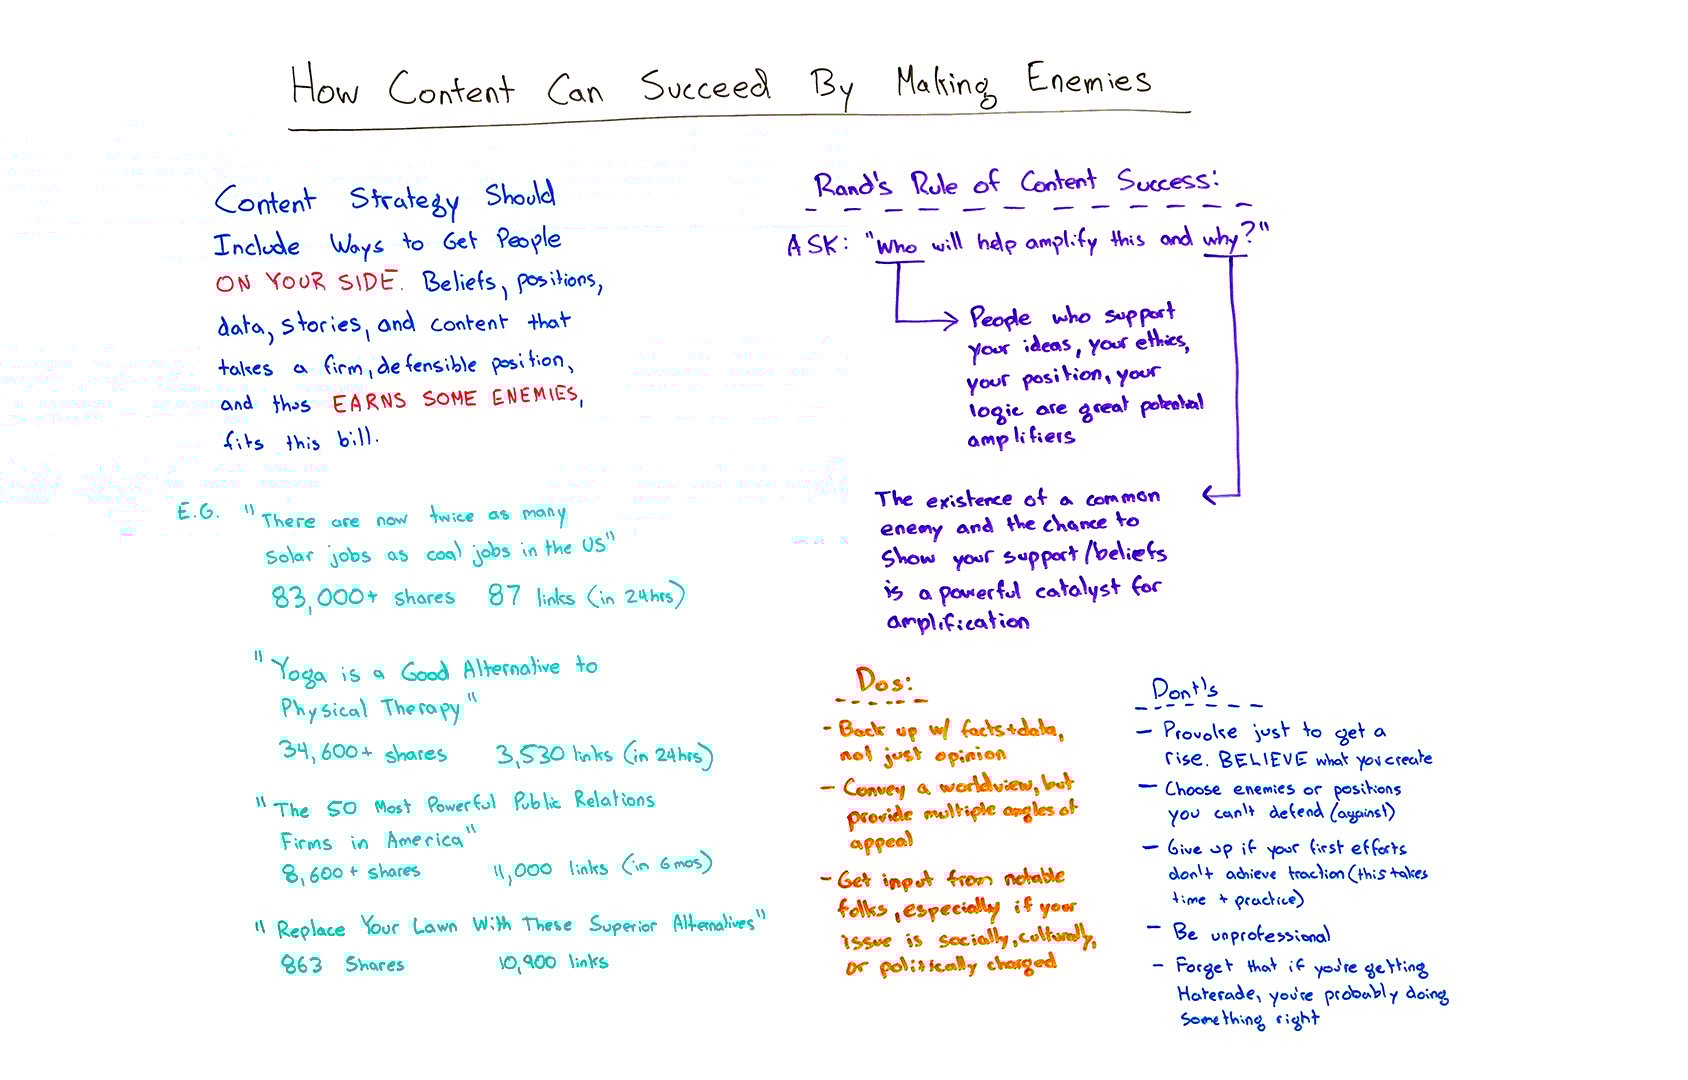 How Content Can Succeed By Making Enemies
Content Strategy Should
Include Ways to Get People
ON YOUR SIDE. Beliefs, positions,
data, stories, and content that
takes a firm, defensible position,
and thus EARNS SOME ENEMIES,
fits this bill.
E.G. "There are now twice as many
solar jobs as coal jobs in the US"
83,000+ shares 87 links (in 24hrs)
"Yoga is a Good Alternative to
Physical Therapy"
34,600+ shares 3,530 links (in 24hrs)
"The 50 Most Powerful Public Relations
Firms in America"
8,600+ shares 11,000 links (in 6mos)
"Replace Your Lawn With These Superior Alternatives"
863 Shares 10,900 links
Rand's Rule of Content Success:
ASK: "Who will help amplify this and why?"
People who support
your ideas, your ethics,
your position, your
logic are great potential
amplifiers
The existence of a common
enemy and the chance to
show your support/beliefs
is a powerful catalyst for
amplification
Dos:
- Back up w/ facts+data,
not just opinion
- Convey a worldview, but
provide multiple angles of
appeal
- Get input from notable
folks, especially if your
issue is socially, culturally,
or politically charged
Dont's
- Provoke just to get a
rise. BELIEVE what you create
- Choose enemies or positions
you can't defend (against)
- Give up if your first efforts
don't achieve traction (this takes
time + practice)
- Be unprofessional
- Forget that if you're getting
Haterade, you're probably doing
something right